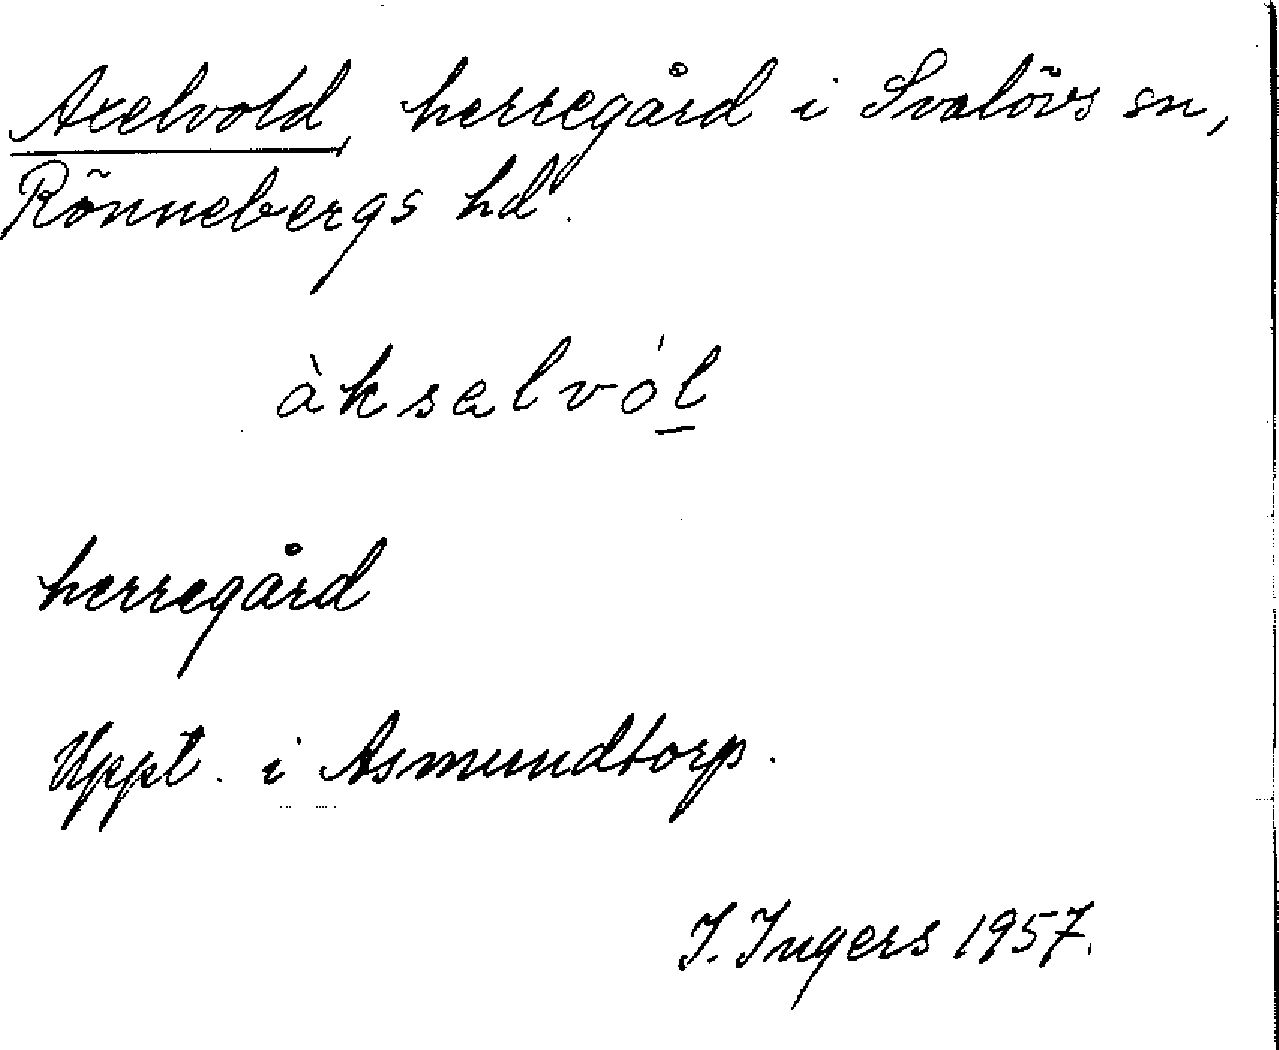 Axelvold, herregård i Svalövs sn,
Rönnebergs hd.
àksəlvó̱l
herregård
Uppt. i Asmundtorp.
I. Ingers 1957.